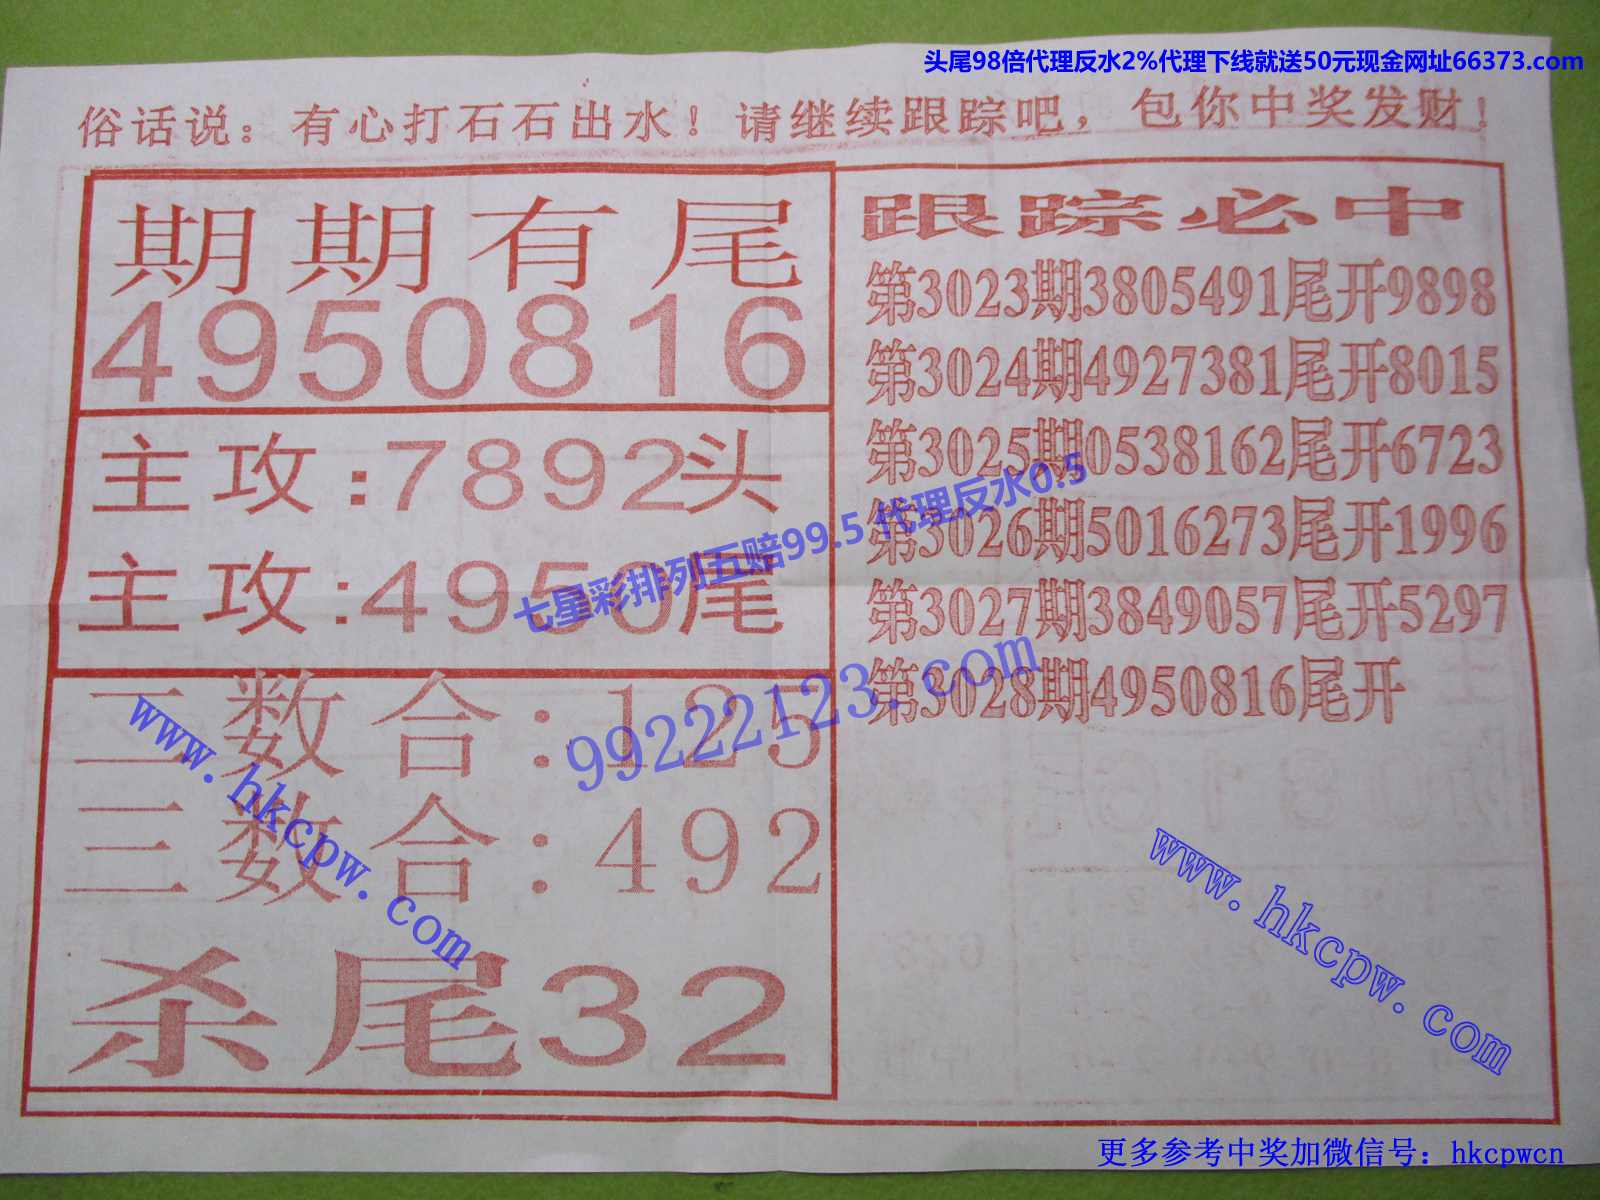 头尾98倍代理反水2%代理下线就送50元现金网址66373.com
俗话说：有心打石石出水！请继续跟踪吧，包你中奖发财！
期期有尾
4950816
主攻:7892头
主攻:4950尾
二数合:125
三数合:492
杀尾32
跟踪必中
第3023期3805491尾开9898
第3024期4927381尾开8015
第3025期0538162尾开6723
第3026期5016273尾开1996
第3027期3849057尾开5297
第3028期4950816尾开
七星彩排列五赔99.5 代理反水0.5
99222123.com
www.hkcpw.com
www.hkcpw.com
更多参考中奖加微信号：hkcpwcn